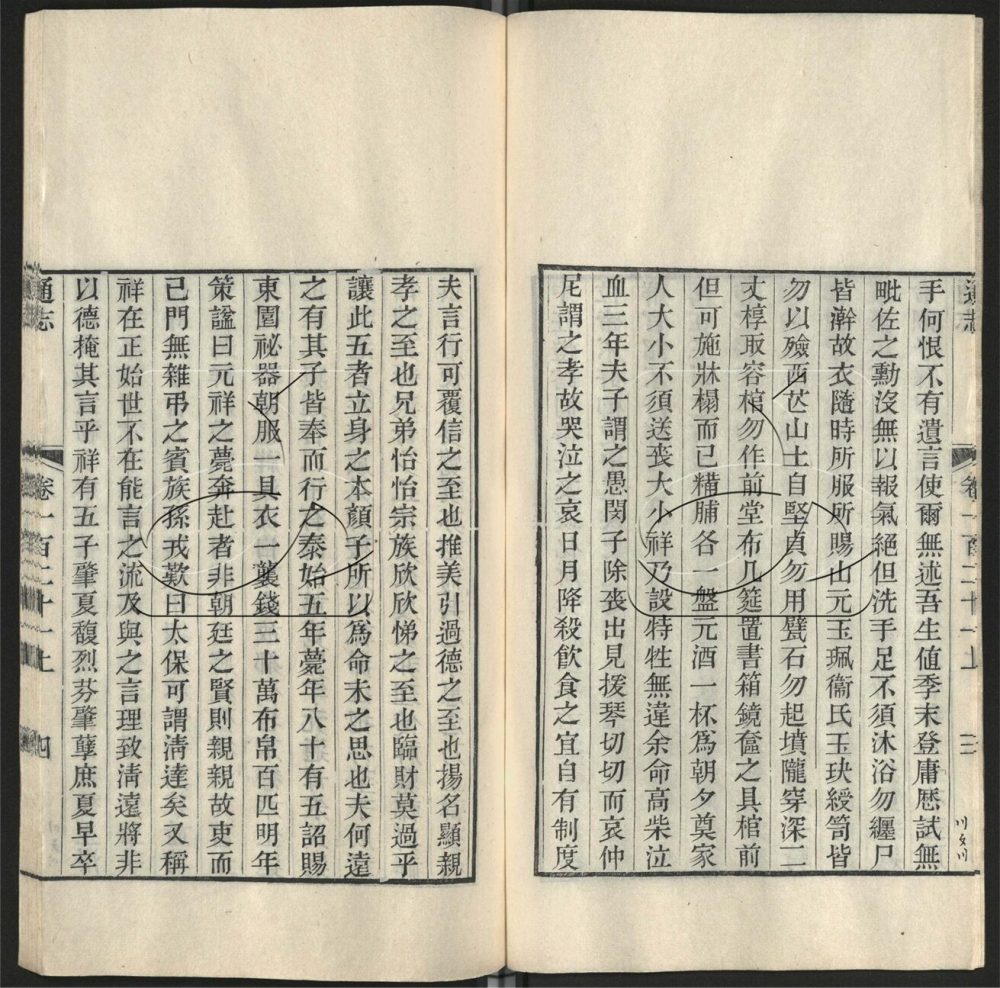 手何恨不有遺言使爾無述吾生値季末登庸歷試無
毗佐之勳沒無以報氣絕但洗手足不須沐浴勿纏尸
皆澣故衣隨時所服所賜山元玉珮衞氏玉玦綬笥皆
勿以殮西芒山土自堅貞勿用甓石勿起墳隴穿深二
丈椁取容棺勿作前堂布几筵置書箱鏡奩之具棺前
但可施牀榻而已糒脯各一盤元酒一杯爲朝夕奠家
人大小不須送喪大小祥乃設特牲無違余命高柴泣
血三年夫子謂之愚閔子除喪出見援琴切切而哀仲
尼謂之孝故哭泣之哀日月降殺飮食之宜自有制度
夫言行可覆信之至也推美引過德之至也揚名顯親
孝之至也兄弟怡怡宗族欣欣悌之至也臨財莫過乎
讓此五者立身之本顏子所以爲命未之思也夫何遠
之有其子皆奉而行之泰始五年薨年八十有五詔賜
東園祕器朝服一具衣一襲錢三十萬布帛百匹明年
策諡曰元祥之薨奔赴者非朝廷之賢則親親故吏而
已門無雜弔之賓族孫戎歎曰太保可謂淸達矣又稱
祥在正始世不在能言之流及與之言理致淸遠將非
以德掩其言乎祥有五子肇夏馥烈芬肇孽庶夏早卒
通志
卷一百二十一上
四